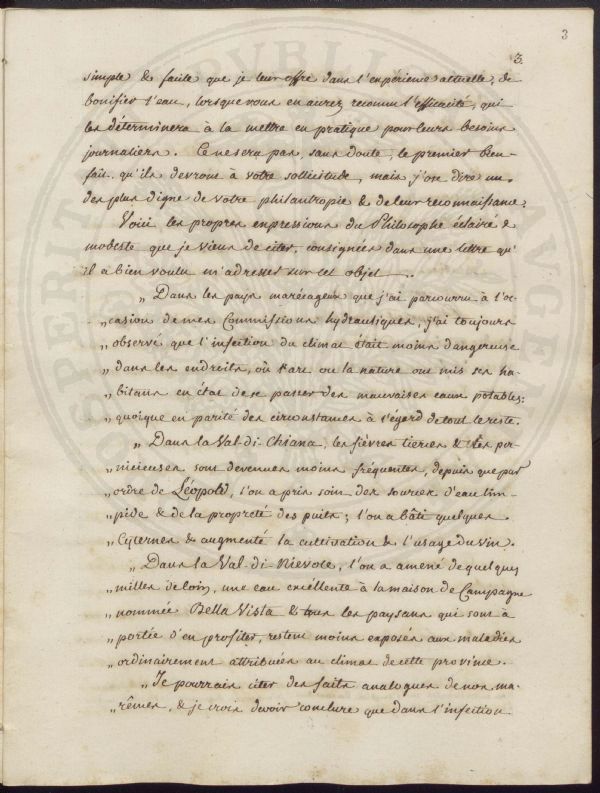 3
3.
simple & facile que je leur offre dans l'expérience actuelle, de
bonifier l'eau, lorsque vous en aurez reconnu l'efficacité, qui
les déterminera à la mettre en pratique pour leurs besoins
journaliers. Ce ne sera pas, sans doute, le premier bien-
fait qu'ils devront à votre sollicitude, mais j'ose dire un
des plus digne de votre philantropie & de leur reconnaissance.
Voici les propres expressions du Philosophe éclairé &
modeste que je viens de citer, consignées dans une lettre qu'
il a bien voulu m'adresser sur cet objet.
„ Dans les pays marécageux que j'ai parcourru à l'oc-
„casion de mes Commissions hydrauliques, j'ai toujours
„observé que l'infection du climat était moins dangereuse
„dans les endroits, où l'art ou la nature ont mis les ha-
„bitans en état de se passer des mauvaises eaux potables:
„quoique en parité des circonstances à l'égard de tout le reste.
„ Dans la Val-di-Chiana, les fièvres tierces & les per-
„nicieuses sont devenues moins fréquentes, depuis que par
„ordre de Léopold, l'on a pris soin des sources d'eau lim-
„pide & de la propreté des puits; l'on a bâti quelques
„Cyternes & augmenté la cultivation & l'usage du vin.
„ Dans la Val-di-Nievole, l'on a amené de quelques
„milles de loin, une eau excéllente à la maison de Campagne
„nommée Bella Vista & tous les paysans qui sont à
„portée d'en profiter, restent moins exposés aux maladies
„ordinairement attribuées au climat de cette province.
„Je pourrais citer des faits analogues de nos ma-
„rêmes, & je crois devoir conclure que dans l'infection
PUBLI